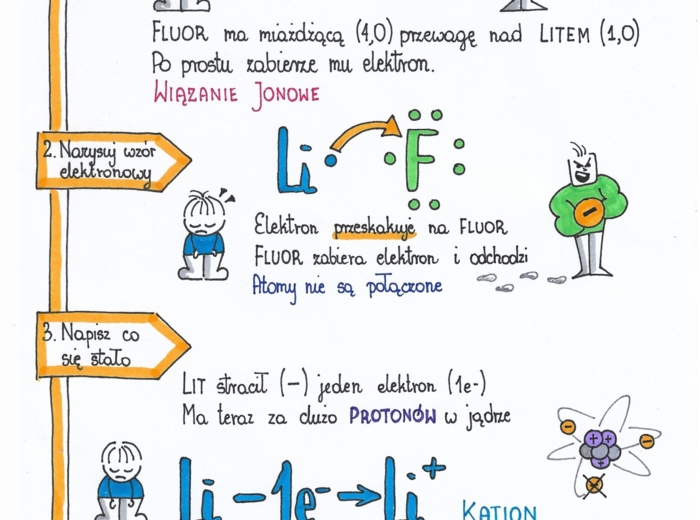 FLUOR ma miażdżącą (4,0) przewagę nad LITEM (1,0)
Po prostu zabierze mu elektron.
WIĄZANIE JONOWE
2. Narysuj wzór
elektronowy
Li F
Elektron przeskakuje na FLUOR
FLUOR zabiera elektron i odchodzi
Atomy nie są połączone
3. Napisz co
się stało
LIT stracił (−) jeden elektron (1e-)
Ma teraz za dużo PROTONÓW w jądrze
Li − 1e⁻ → Li⁺
KATION